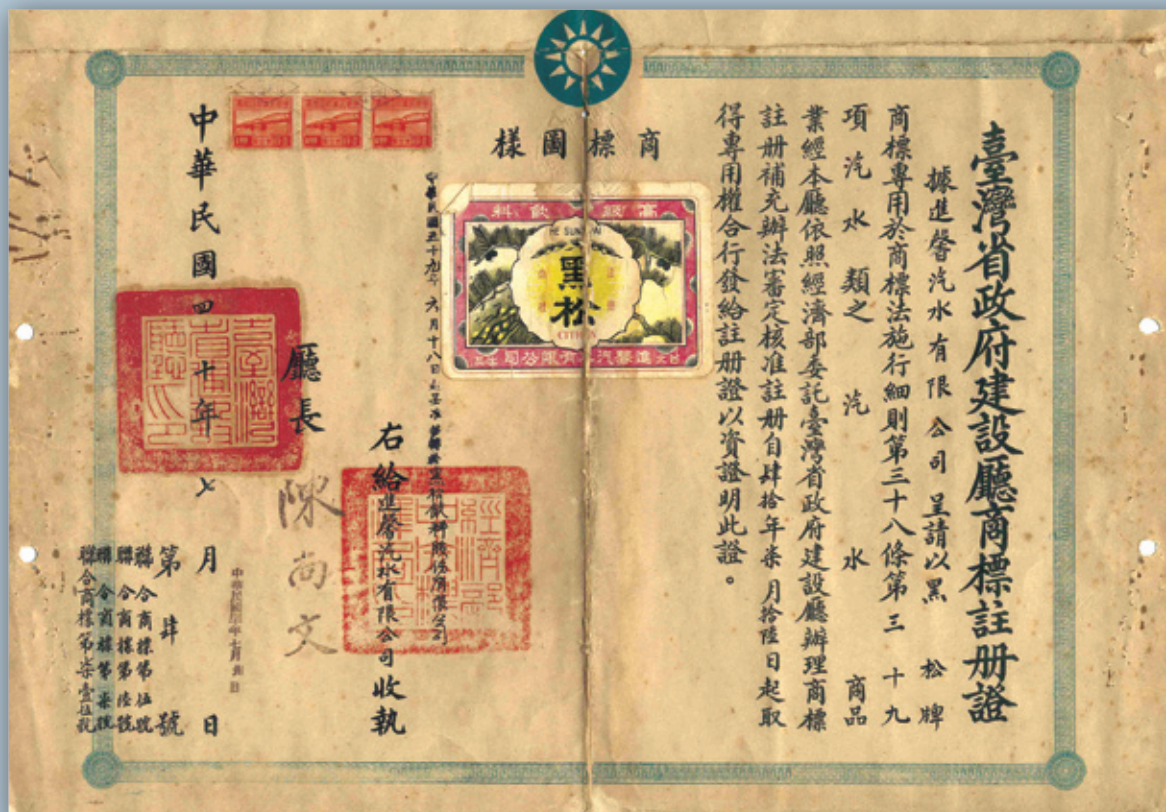 臺灣省政府建設廳商標註册證
據進馨汽水有限公司呈請以黑松牌
商標專用於商標法施行細則第三十八條第三十九
項汽水類之汽水商品
業經本廳依照經濟部委託臺灣省政府建設廳辦理商標
註册補充辦法審定核准註册自肆拾年柒月拾陸日起取
得專用權合行發給註册證以資證明此證。
商標圖樣
高級飲料
黑松
右給進馨汽水有限公司收執
中華民國五十九年六月十八日
廳長
陳尚文
中華民國四十年七月日
第肆號
聯合商標第伍號
聯合商標第陸號
聯合商標第柒號
聯合商標第柒壹伍號